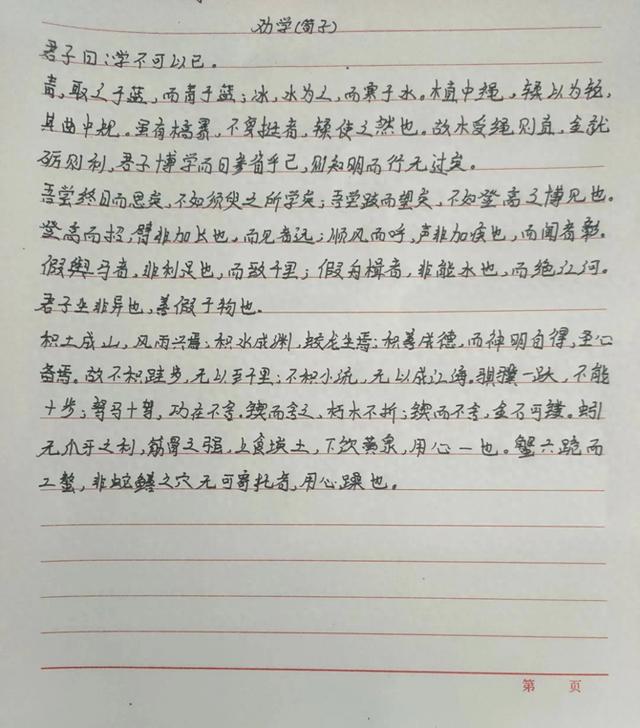 劝学(荀子)
君子曰:学不可以已。
青,取之于蓝,而青于蓝;冰,水为之,而寒于水。木直中绳,𫐓以为轮,
其曲中规。虽有槁暴,不复挺者,𫐓使之然也。故木受绳则直,金就
砺则利,君子博学而日参省乎己,则知明而行无过矣。
吾尝终日而思矣,不如须臾之所学矣;吾尝跂而望矣,不如登高之博见也。
登高而招,臂非加长也,而见者远;顺风而呼,声非加疾也,而闻者彰。
假舆马者,非利足也,而致千里;假舟楫者,非能水也,而绝江河。
君子生非异也,善假于物也。
积土成山,风雨兴焉;积水成渊,蛟龙生焉;积善成德,而神明自得,圣心
备焉。故不积跬步,无以至千里;不积小流,无以成江海。骐骥一跃,不能
十步;驽马十驾,功在不舍。锲而舍之,朽木不折;锲而不舍,金石可镂。蚓
无爪牙之利,筋骨之强,上食埃土,下饮黄泉,用心一也。蟹六跪而
二螯,非蛇鳝之穴无可寄托者,用心躁也。
第 页